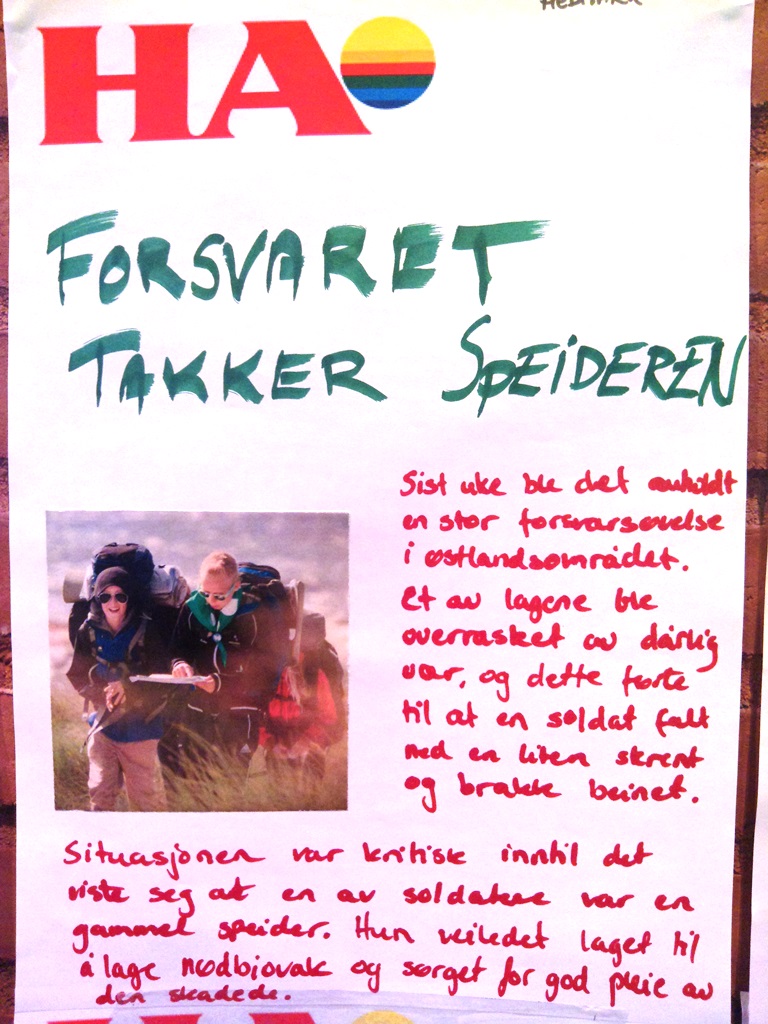 HA
FORSVARET
TAKKER SPEIDEREN
Sist uke ble det avholdt
en stor forsvarsøvelse
i østlandsområdet.
Et av lagene ble
overrasket av dårlig
vær, og dette førte
til at en soldat falt
ned en liten skrent
og brakk beinet.
Situasjonen var kritisk inntil det
viste seg at en av soldatene var en
gammel speider. Hun veiledet laget til
å lage nødbiovak og sørget for god pleie av
den skadede.
HA